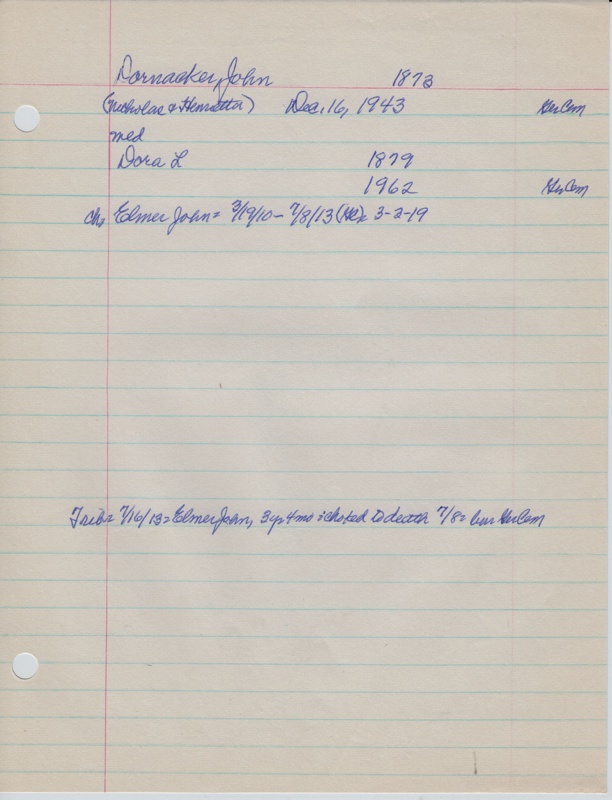 Dornacker, John 1873
(Nicholas & Henrietta) Dec. 16, 1943 Cem
med
Dora L 1879
1962 Cem
ch, Elmer John = 3/19/10 - 7/8/13 = 3-2-19
Trib = 7/16/13 = Elmer John, 3 yr 4 mo = choked to death 7/8 = bur Cem